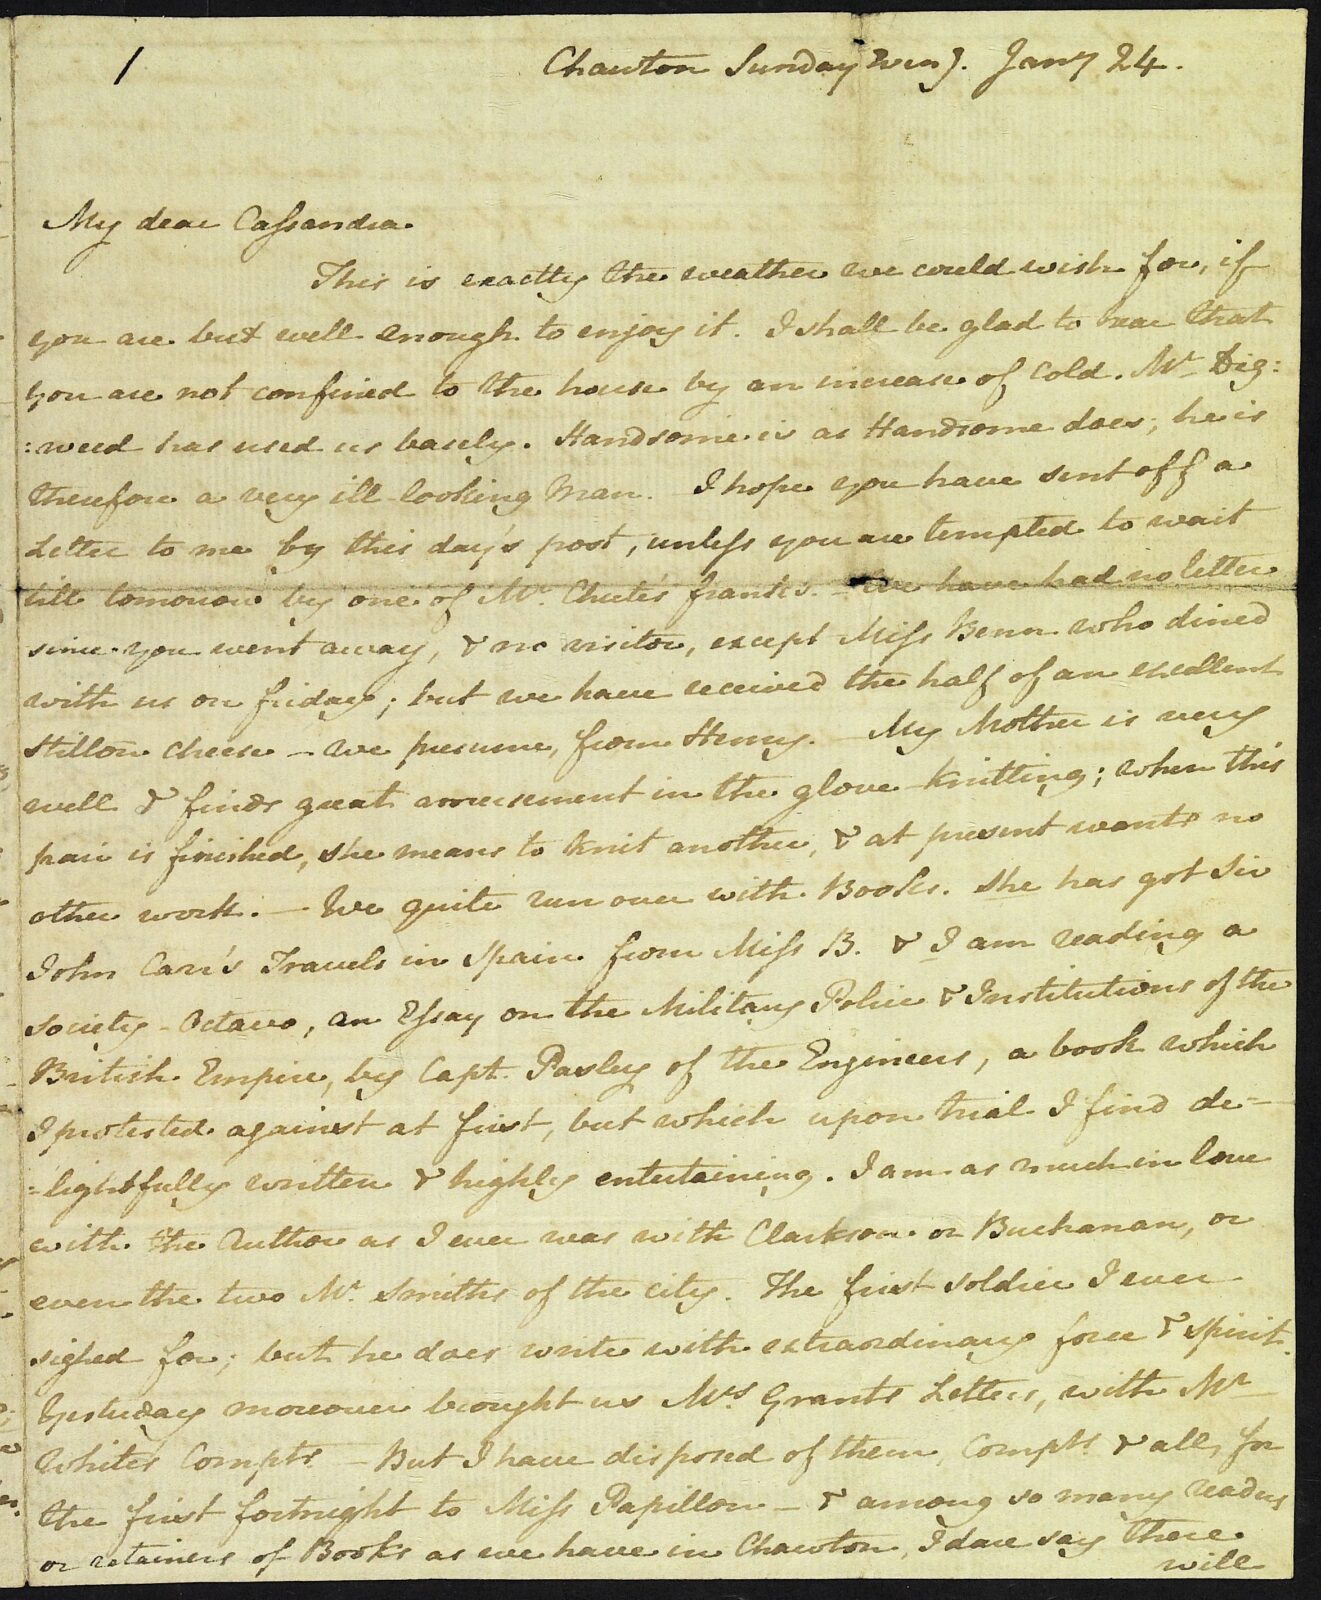 1
Chawton Sunday Even^g. Jan^y 24.
My dear Cassandra.
This is exactly the weather we could wish for, if
you are but well enough to enjoy it. I shall be glad to hear that
you are not confined to the house by an increase of Cold. M^r Dig:
:weed has used us basely. Handsome is as Handsome does; he is
therefore a very ill-looking Man. I hope you have sent off a
Letter to me by this day's post, unless you are tempted to wait
till tomorrow by one of M^r. Chute's franks. – We have had no letter
since you went away, & no visitor, except Miss Benn who dined
with us on friday; but we have received the half of an excellent
Stilton cheese – we presume, from Henry. – My Mother is very
well & finds great amusement in the glove-knitting; when this
pair is finished, she means to knit another, & at present wants no
other work. – We quite run over with Books. She has got Sir
John Carr's Travels in Spain from Miss B. & I am reading a
Society-Octavo, an Essay on the Military Police & Institutions of the
British Empire, by Capt. Pasley of the Engineers, a book which
I protested against at first, but which upon trial I find de=
=lightfully written & highly entertaining. I am as much in love
with the Author as I ever was with Clarkson or Buchanan, or
even the two M^r. Smiths of the city. The first soldier I ever
sighed for; but he does write with extraordinary force & spirit.
Yesterday moreover brought us M^rs Grants Letters, with M^r
Whites Comp^ts – But I have disposed of them, Comp^ts & all, for
the first fortnight to Miss Papillon – & among so many readers
or retainers of Books as we have in Chawton, I dare say there
will